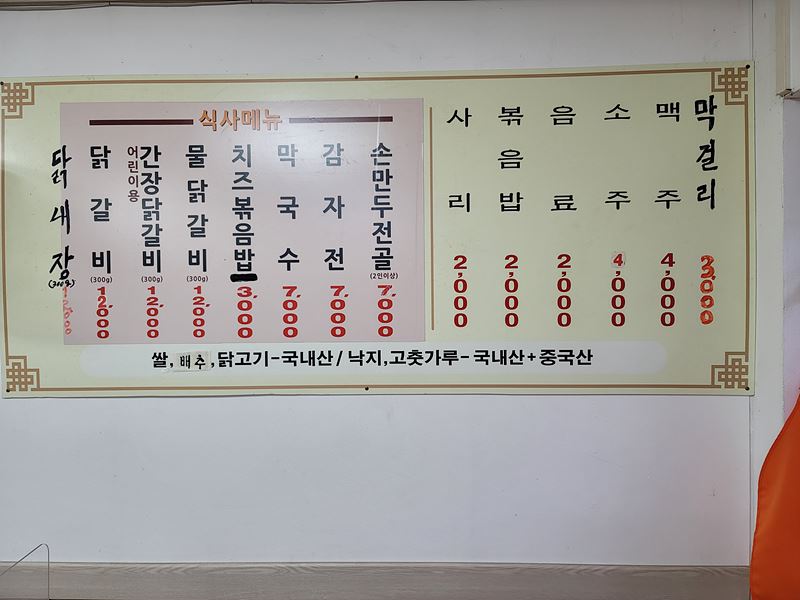 식사메뉴
닭내장
(300g)
닭갈비
(300g)
12,000
어린이용
간장닭갈비
(300g)
12,000
물닭갈비
(300g)
12,000
치즈볶음밥
3,000
막국수
7,000
감자전
7,000
손만두전골
(2인이상)
7,000
사리
2,000
볶음밥
2,000
음료
2,000
소주
4,000
맥주
4,000
막걸리
3,000
쌀, 배추, 닭고기-국내산 / 낙지,고춧가루-국내산+중국산